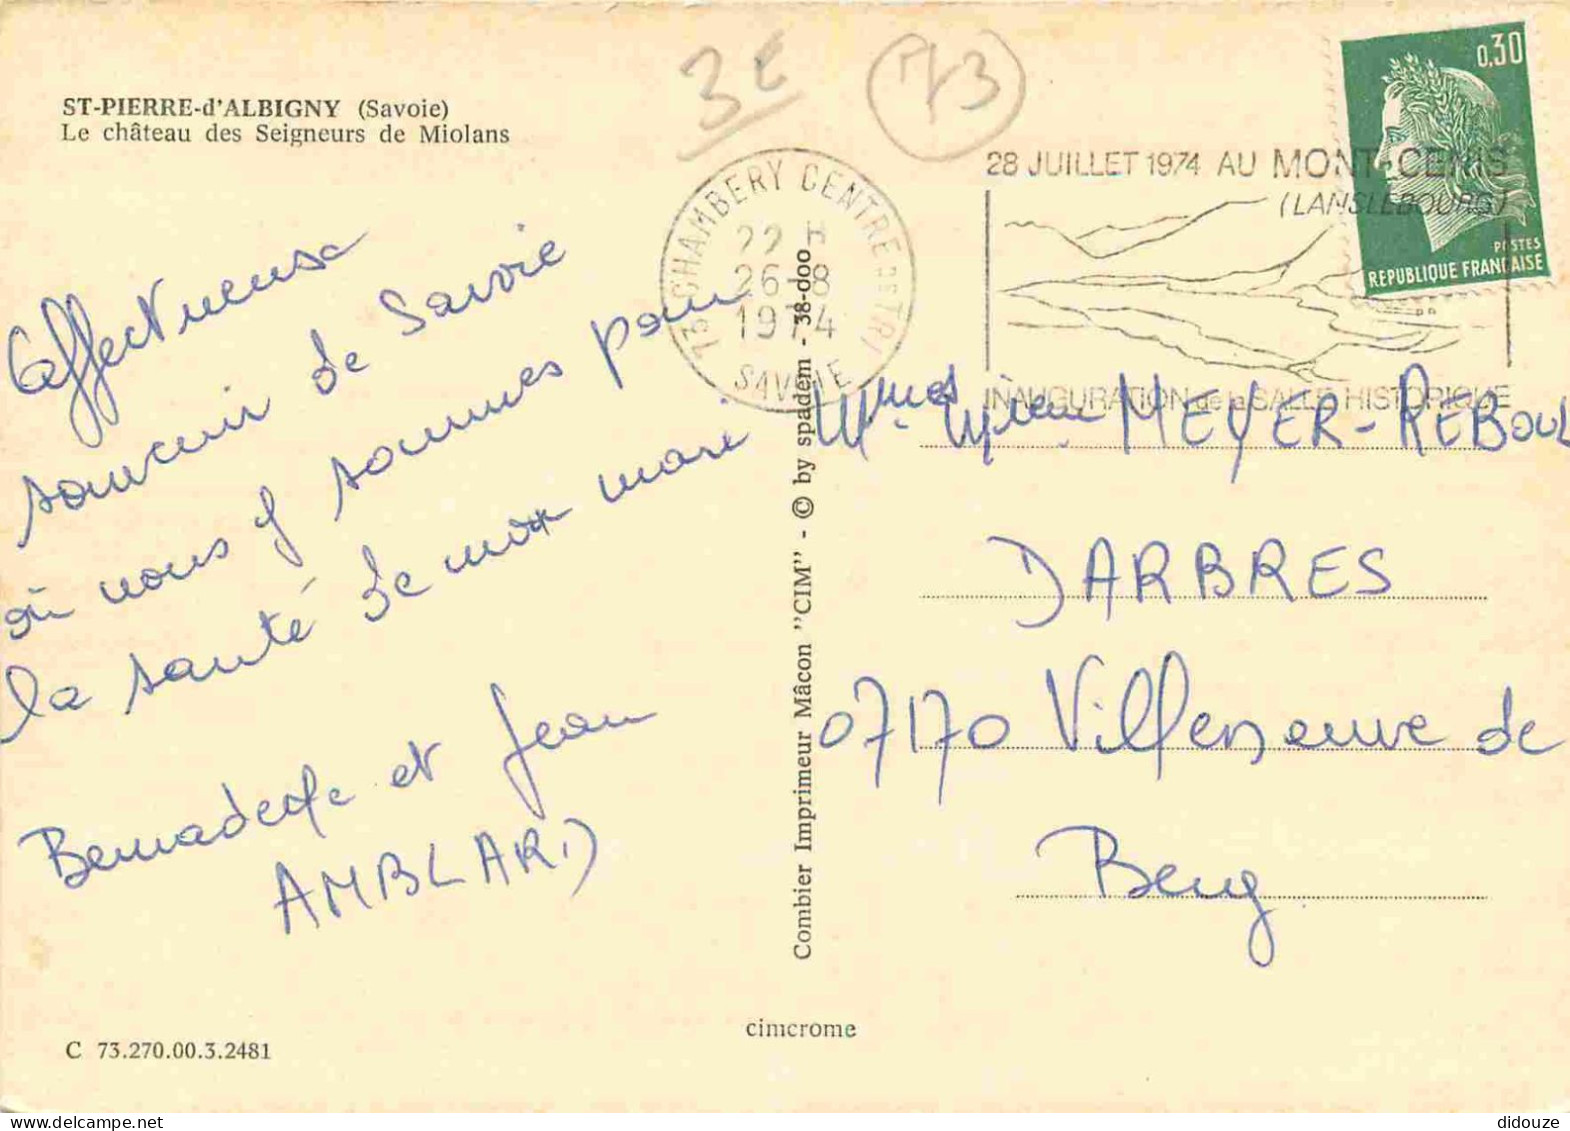 ST-PIERRE-d'ALBIGNY (Savoie)
Le château des Seigneurs de Miolans
3€
73
73 CHAMBERY CENTRE DE TRI
22 H
26-8
1974
SAVOIE
28 JUILLET 1974 AU MONT-CENIS
(LANSLEBOURG)
INAUGURATION de la SALLE HISTORIQUE
0,30
POSTES
REPUBLIQUE FRANCAISE
affectueuse
souvenir de Savoie
où nous y sommes pour
la santé de mon mari
Bernadette et Jean
AMBLARD
MEYER-REBOUL
DARBRES
07170 Villeneuve de
Berg
Combier Imprimeur Mâcon "CIM" - © by spadem - 38-doo
cimcrome
C 73.270.00.3.2481
didouze